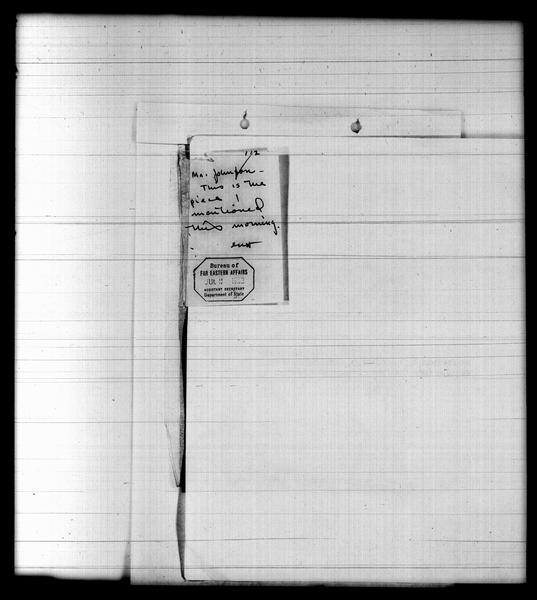 1/12
Mr. Johnson -
This is the
piece I
mentioned
this morning.
Bureau of
FAR EASTERN AFFAIRS
JUL
ASSISTANT SECRETARY
Department of State